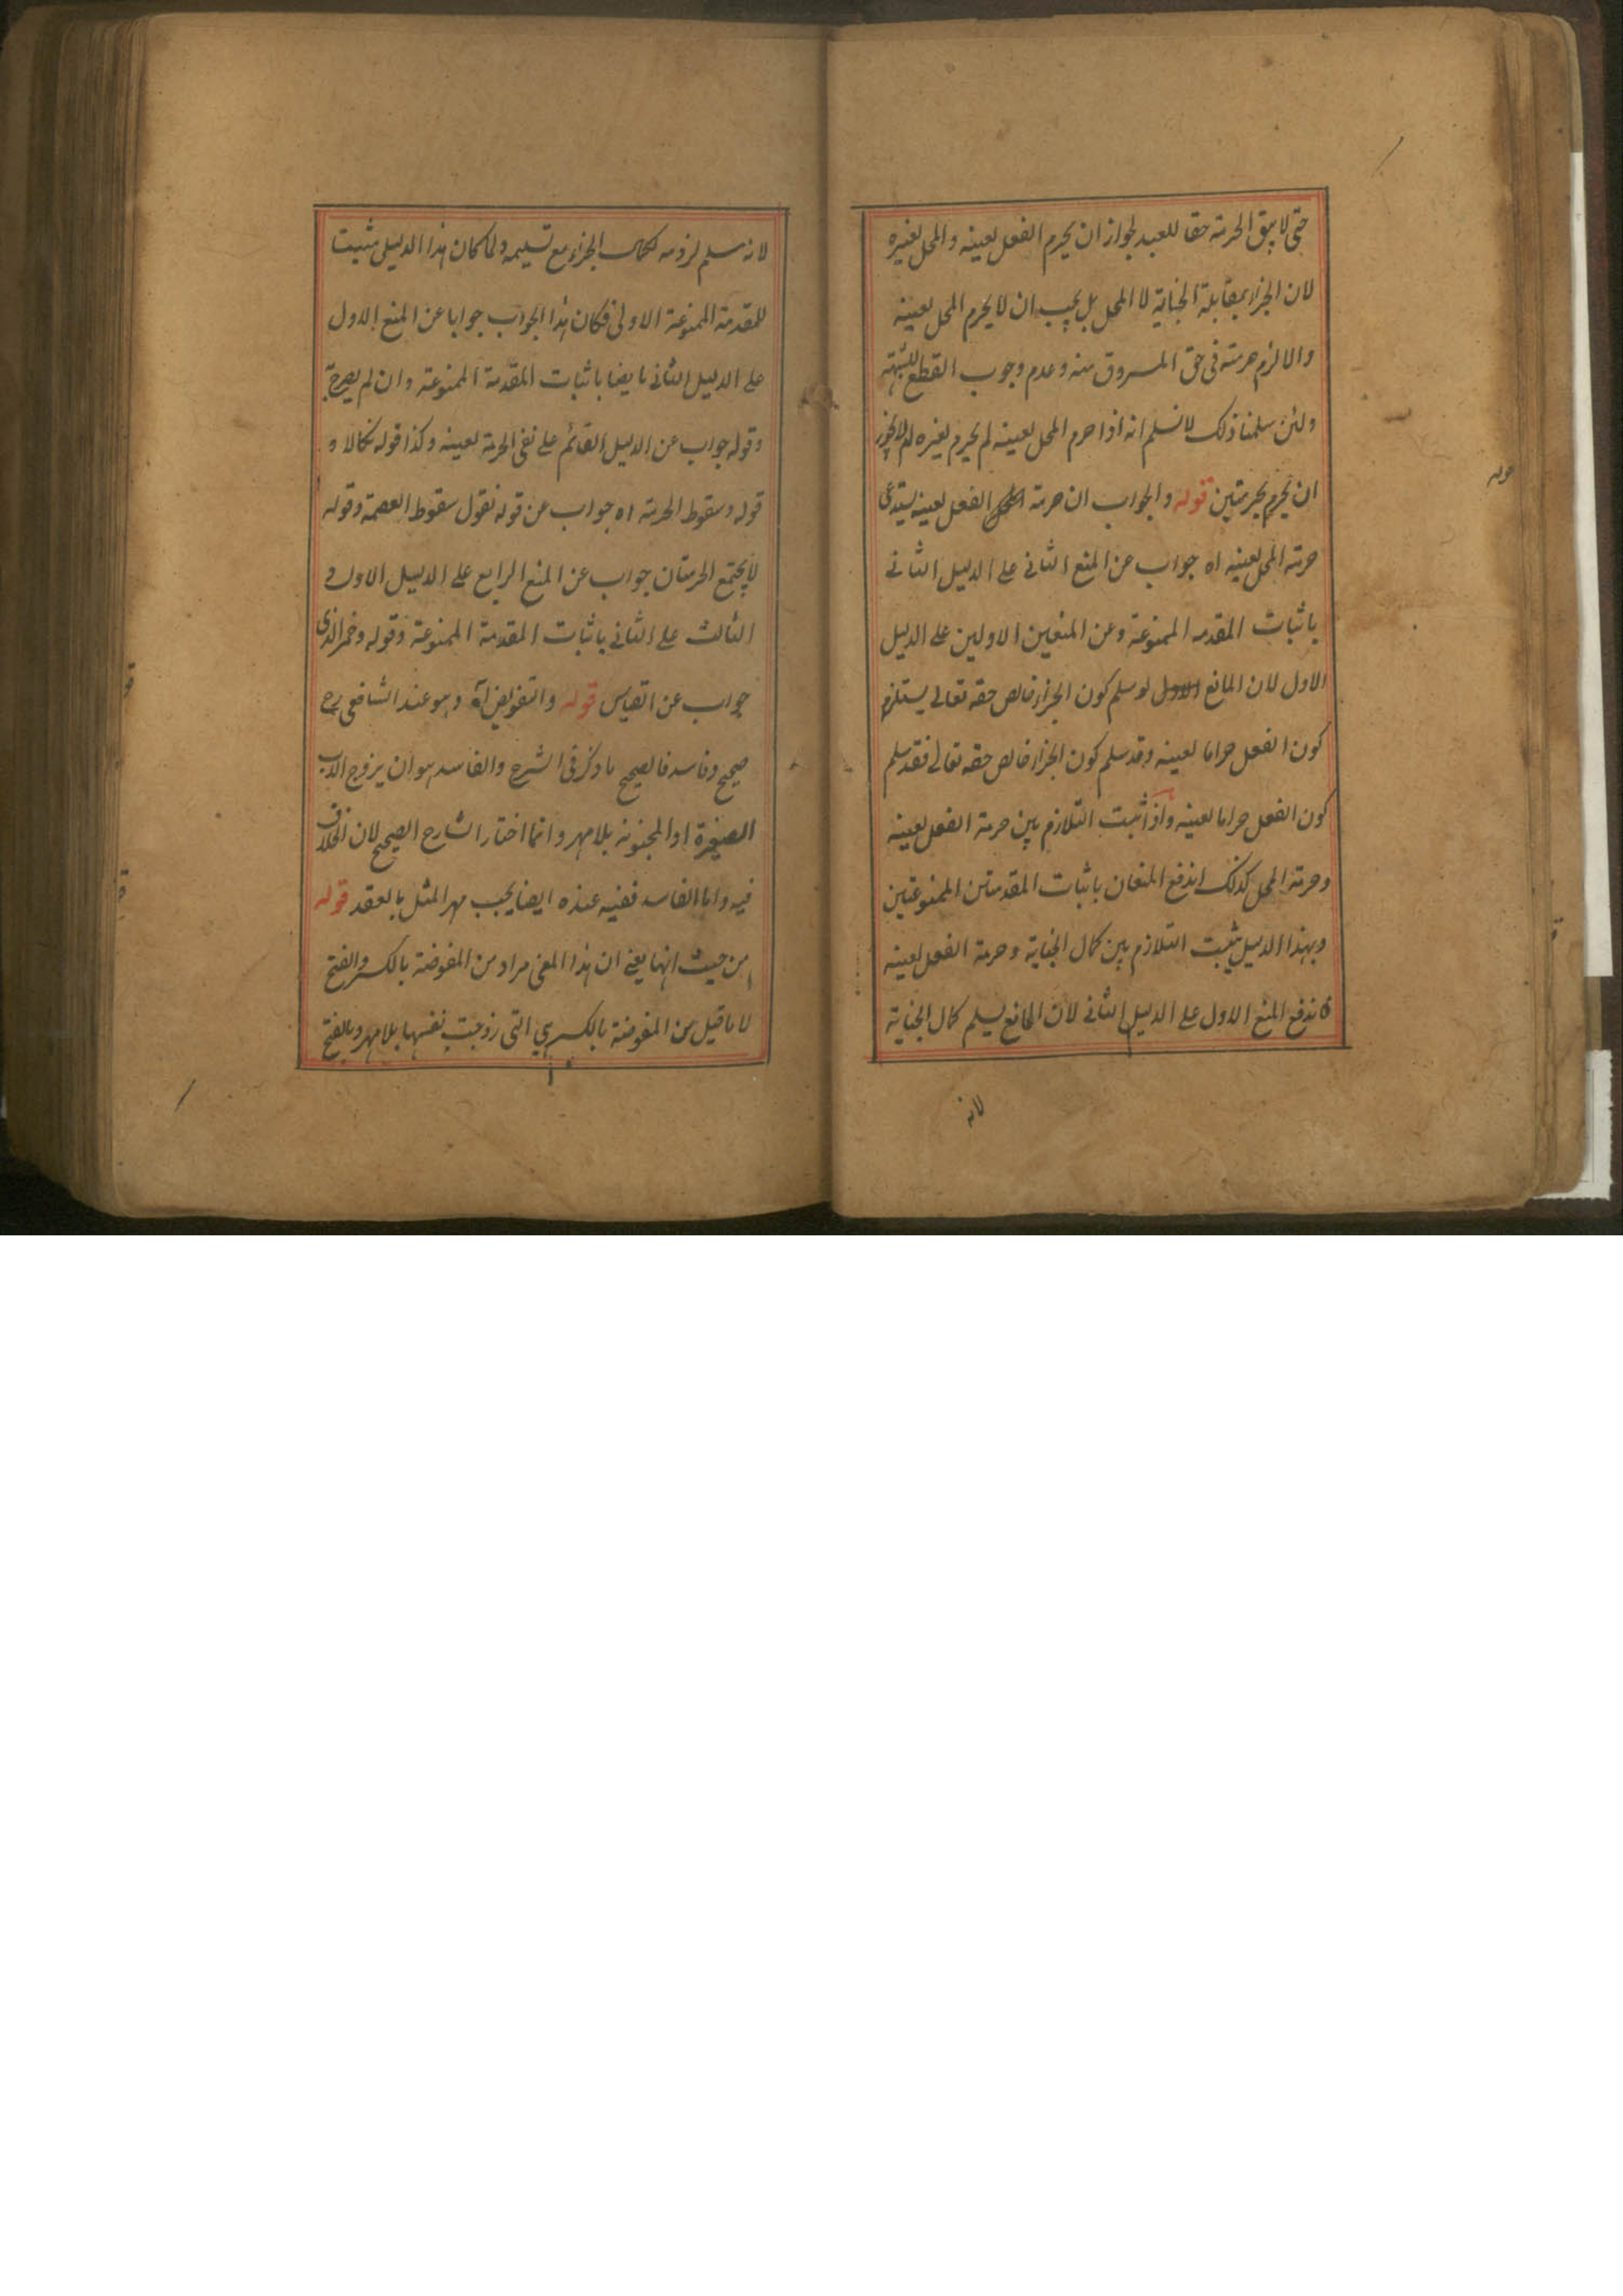 حتى لا يبق الحرمة حقا للعبد لجواز ان يحرم الفعل لعينه والمحل لغيره
لان الجزاء بمقابلة الجناية لا المحل بل يجب ان لا يحرم المحل لعينه
والا لزم حرمته فى حق المسروق منه وعدم وجوب القطع للشبهة
ولئن سلمنا ذلك لا نسلم انه اذا حرم المحل لعينه لم يحرم لغيره لم لا يجوز
ان يحرم بحرمتين قوله والجواب ان حرمة الفعل لعينه يستدعى
حرمة المحل لعينه اه جواب عن المنع الثانى على الدليل الثانى
باثبات المقدمه الممنوعة وعن المنعين الاولين على الدليل
الاول لان المانع لو سلم كون الجزاء خالص حقه تعالى يستلزم
كون الفعل حراما لعينه وقد سلم كون الجزاء خالص حقه تعالى فقد سلم
كون الفعل حراما لعينه واذا ثبت التلازم بين حرمة الفعل لعينه
وحرمة المحل كذلك اندفع المنعان باثبات المقدمتين الممنوعتين
وبهذا الدليل يثبت التلازم بين كمال الجناية وحرمة الفعل لعينه
فاندفع المنع الاول على الدليل الثانى لان المانع يسلم كمال الجناية
لانه
قوله
لانه سلم لزومه لكمال الجزاء مع تسليمه ولما كان هذا الدليل مثبتا
للمقدمة الممنوعة الاولى فكان هذا الجواب جوابا عن المنع الاول
على الدليل الثانى ايضا باثبات المقدمة الممنوعة وان لم يصرح به
وقوله جواب عن الدليل القائم على نفى الحرمة لعينه وكذا قوله نكالا و
قوله وسقوط الحرمة اه جواب عن قوله نقول سقوط العصمة وقوله
لا يجتمع الحرمتان جواب عن المنع الرابع على الدليل الاول و
الثالث على الثانى باثبات المقدمة الممنوعة وقوله وخمر الذى
جواب عن القياس قوله والتفويض اه وهو عند الشافعى رح
صحيح وفاسد فالصحيح ما ذكر فى الشرح والفاسد هو ان يزوج الاب
الصغيرة او المجنونه بلا مهر وانما اختار الشارح الصحيح لان الخلاف
فيه واما الفاسد ففيه عنده ايضا يجب مهر المثل بالعقد قوله
من حيث انها يعنى ان هذا المعنى مراد من المفوضة بالكسر والفتح
لا ما قيل من المفوضة بالكسر هي التى زوجت نفسها بلا مهر وبالفتح